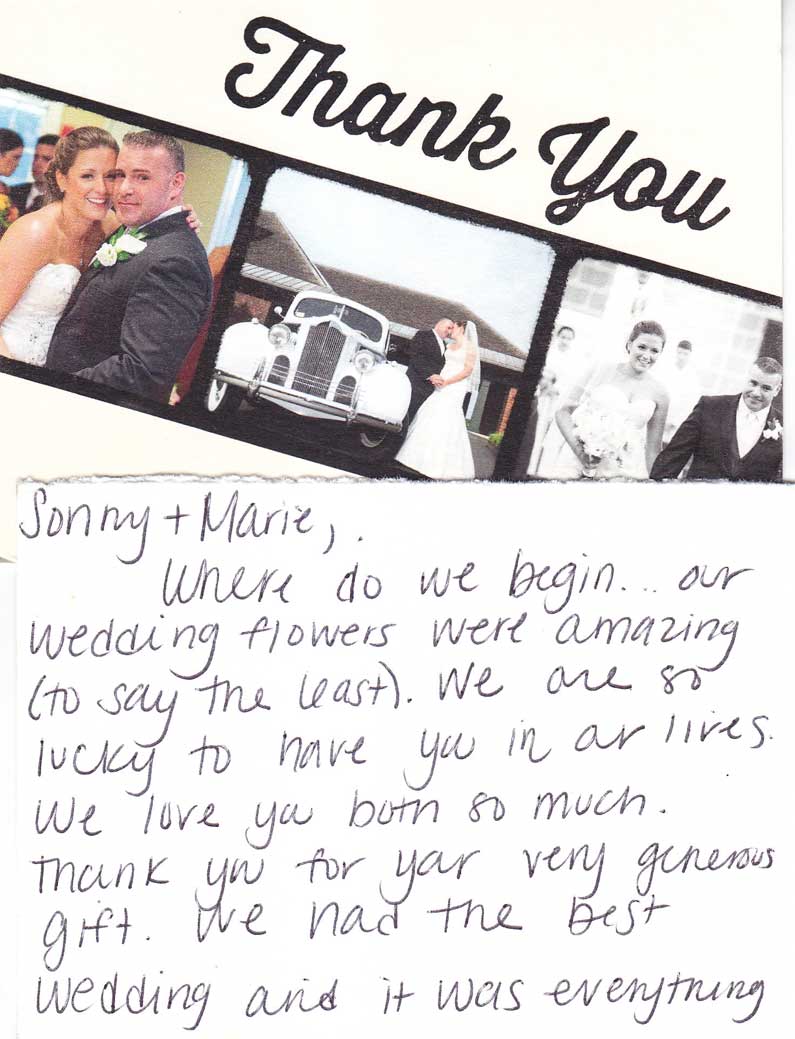 Thank You
Sonny + Marie,.
Where do we begin... our
wedding flowers were amazing
(to say the least). We are so
lucky to have you in our lives.
We love you both so much.
Thank you for your very generous
gift. We had the best
wedding and it was everything